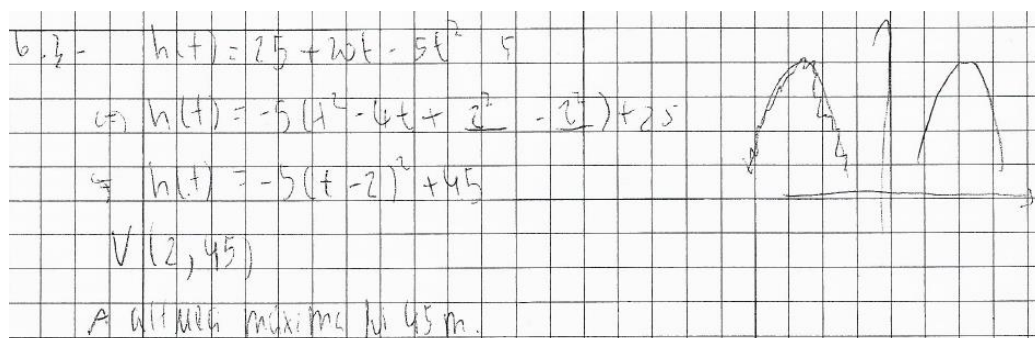 6.3- h(t) = 25 + 20t - 5t² 5
⇔ h(t) = -5(t² - 4t + 2² - 2²) + 25
⇔ h(t) = -5(t - 2)² + 45
V(2, 45)
A altura máxima foi 45 m.